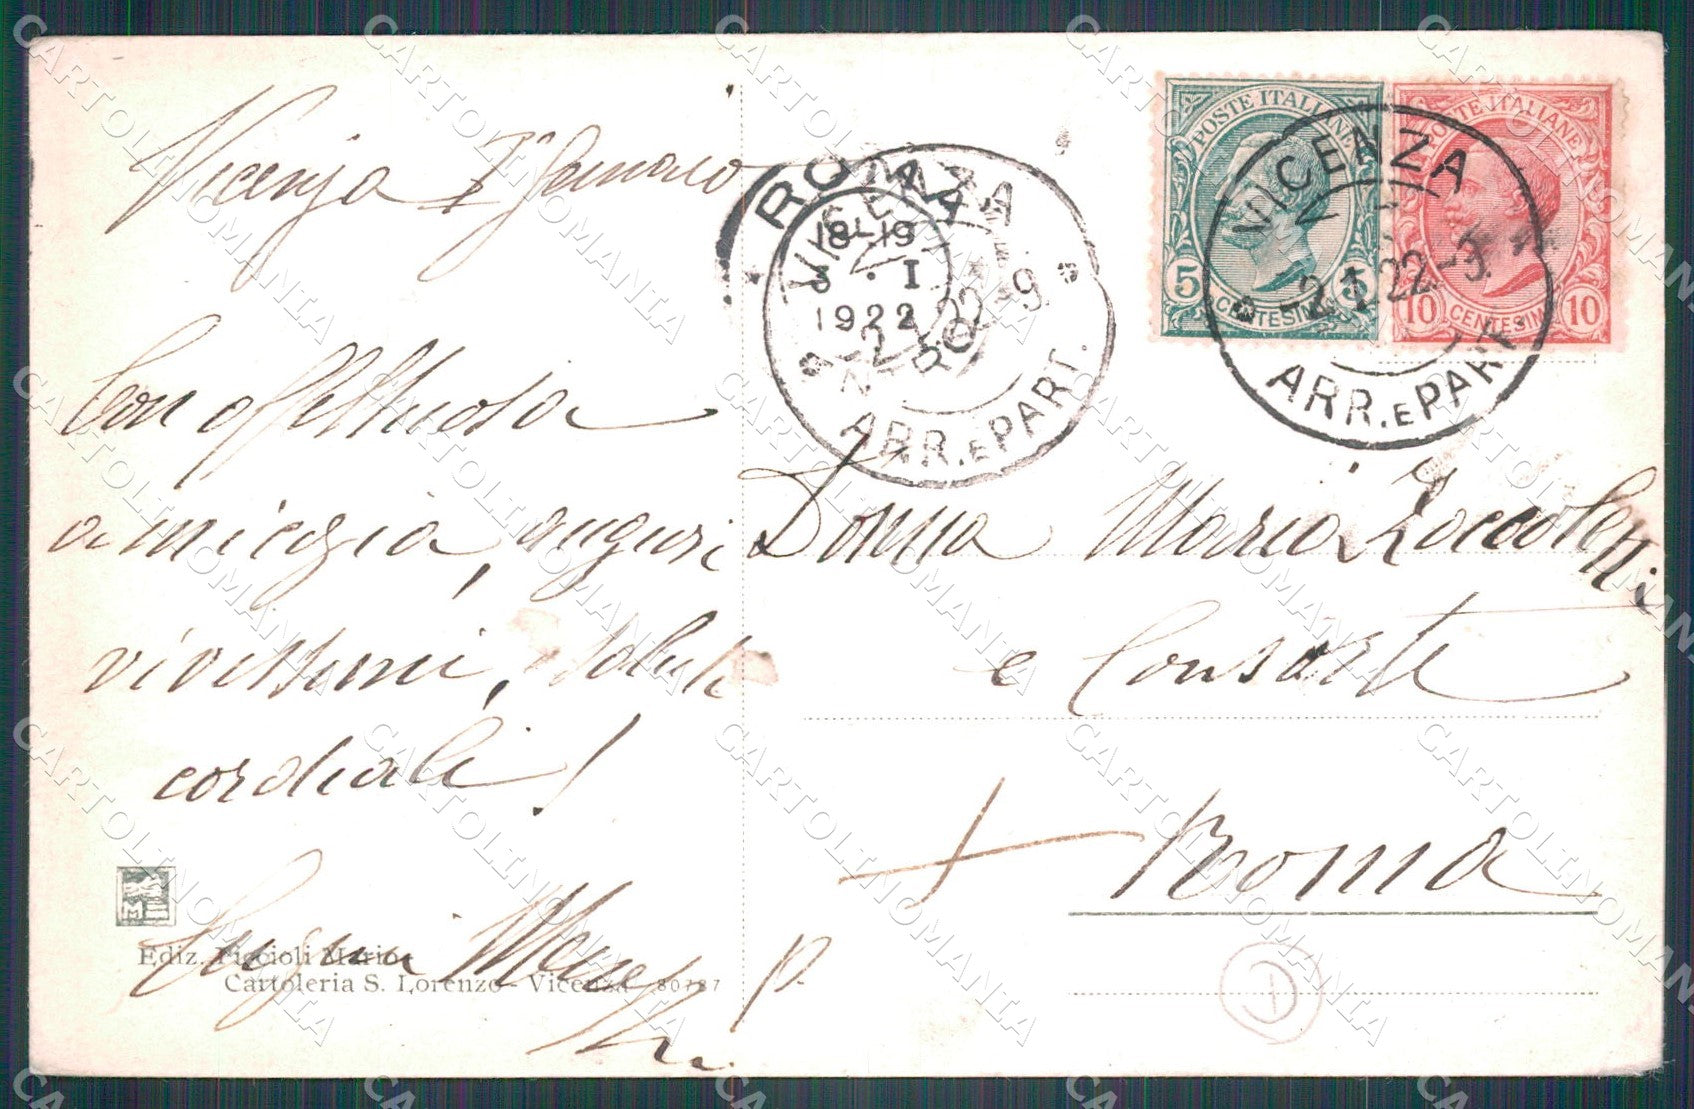 Vicenza 1° Gennaro
Con affettuosa
amicizia, auguri
vivissimi, saluti
cordiali!
Ediz. Piccioli Mario
Cartoleria S. Lorenzo - Vicenza 80787
ROMA
18-19
I
1922
VICENZA
-2.1.22.-9
ARR. E PART.
POSTE ITALIANE
5 5
CENTESIMI
POSTE ITALIANE
10 10
CENTESIMI
VICENZA
-2.1.22.-9
ARR. E PART.
Donna Maria
e Consorte
Roma
P.
CARTOLINOMANIA